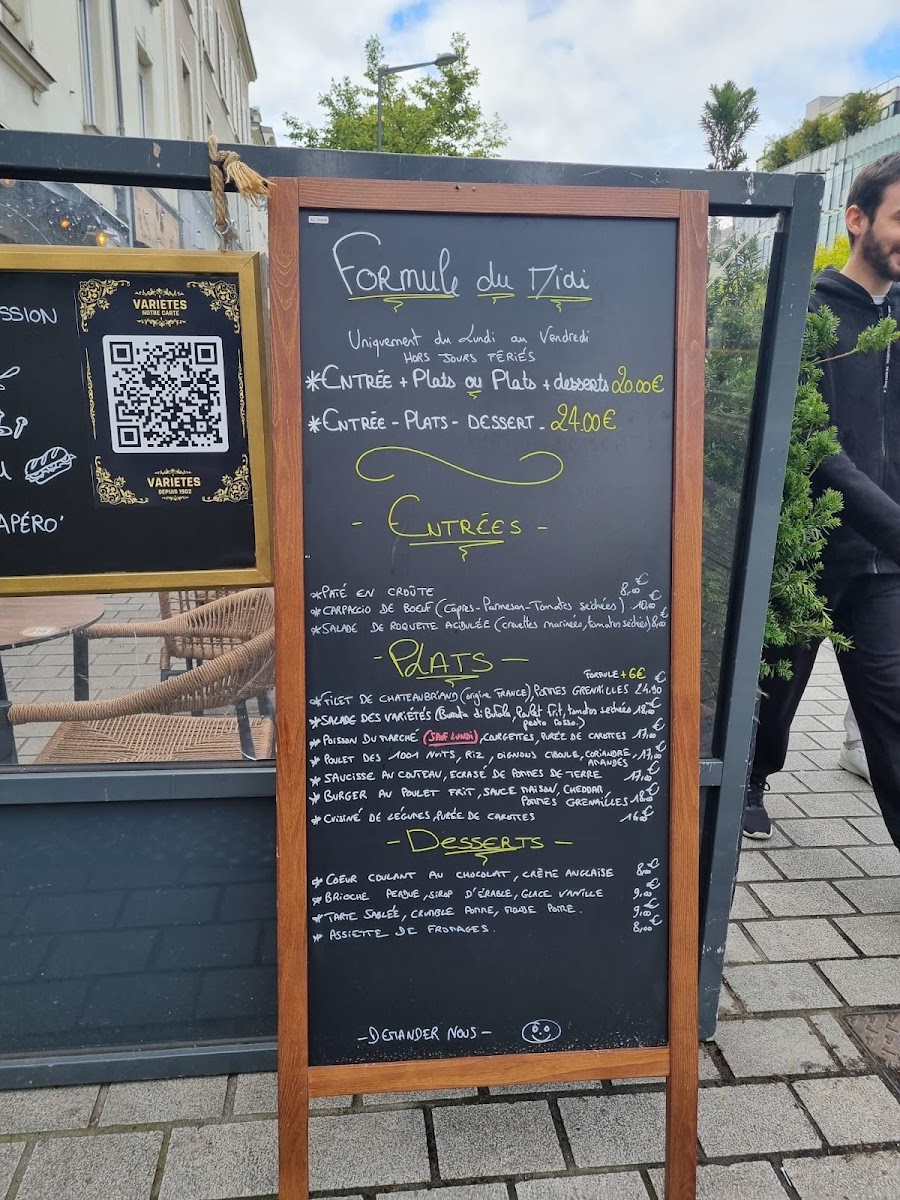 SSION
VARIETES
NOTRE CARTE
VARIETES
DEPUIS 1902
APÉRO'
Formule du Midi
Uniquement du Lundi au Vendredi
HORS JOURS FÉRIÉS
*ENTRÉE + Plats ou Plats + desserts 20.00€
*ENTRÉE - PLATS - DESSERT - 24.00€
- ENTRÉES -
*PATÉ EN CROÛTE 8,00€
*CARPACCIO DE BOEUF (Capres-Parmesan-Tomates séchées) 10,00€
*SALADE DE ROQUETTE ACIDULÉE (crevettes marinées, tomates séchées) 8,00€
- PLATS -
FORMULE +6€
*FILET DE CHATEAUBRIAND (origine FRANCE) POMMES GRENAILLES 24.90€
*SALADE DES VARIÉTÉS (Burrata di Bufala, Poulet Frit, tomates séchées 18,00€
pesto rosso.)
*POISSON DU MARCHÉ (SAUF LUNDI), COURGETTES, PURÉE DE CAROTTES 17,00€
*POULET DES 1001 NUITS, RIZ, OIGNONS CIBOULE, CORIANDRE, 17,00€
AMANDES
*SAUCISSE AU COUTEAU, ECRASÉ DE POMMES DE TERRE 17,00€
*BURGER AU POULET FRIT, SAUCE MAISON, CHEDDAR,
POMMES GRENAILLES 18,00€
*CUISINÉ DE LÉGUMES, PURÉE DE CAROTTES 16,00€
- DESSERTS -
*COEUR COULANT AU CHOCOLAT, CRÈME ANGLAISE 8,00€
*BRIOCHE PERDUE, SIROP D'ÉRABLE, GLACE VANILLE 9,00€
*TARTE SABLÉE, CRUMBLE POMME, POIRE 9,00€
*ASSIETTE DE FROMAGES. 8,00€
- DEMANDER NOUS -